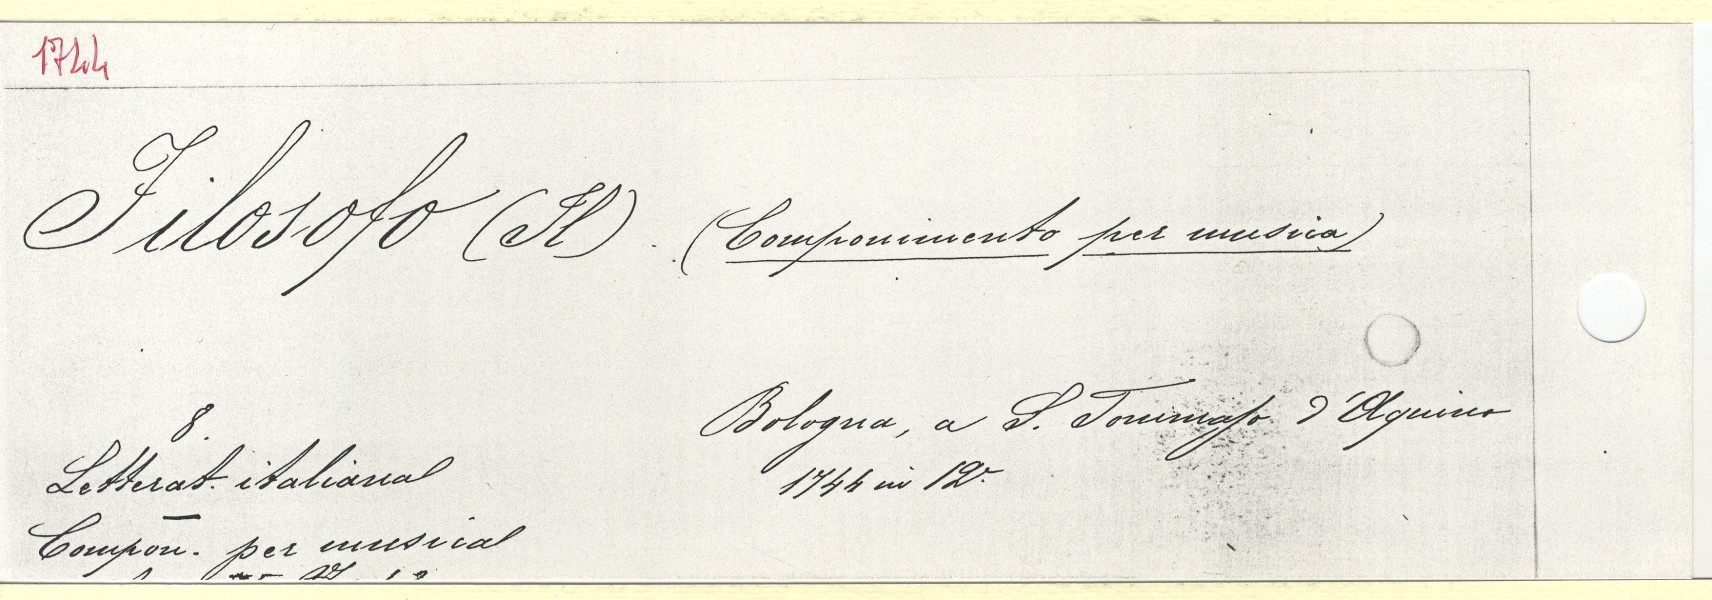 1744
Filosofo (Il). (Componimento per musica)
Bologna, a S. Tommaso d'Aquino
1744 in 12º
8.
Letterat. italiana
Compon. per musica